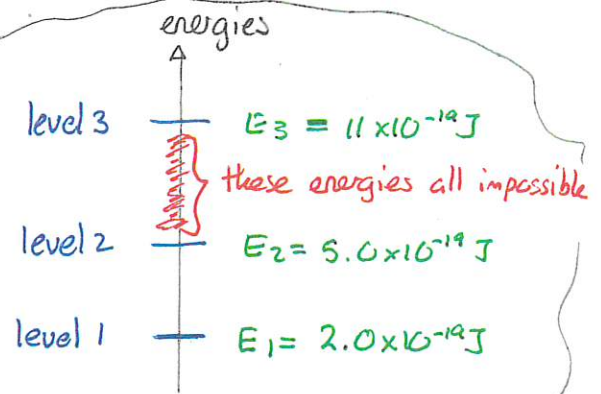 energies
level 3 E₃ = 11 x10⁻¹⁹ J
these energies all impossible
level 2 E₂ = 5.0 x10⁻¹⁹ J
level 1 E₁ = 2.0 x10⁻¹⁹ J